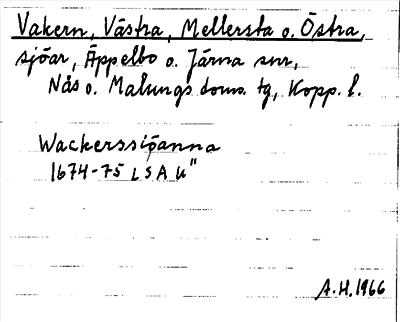 Vakern, Västra, Mellersta o. Östra,
sjöar, Äppelbo o. Järna snr,
Nås o. Malungs doms. tg, Kopp. l.
Wackerssiöanna
1674-75 LSA U"
A.H. 1966